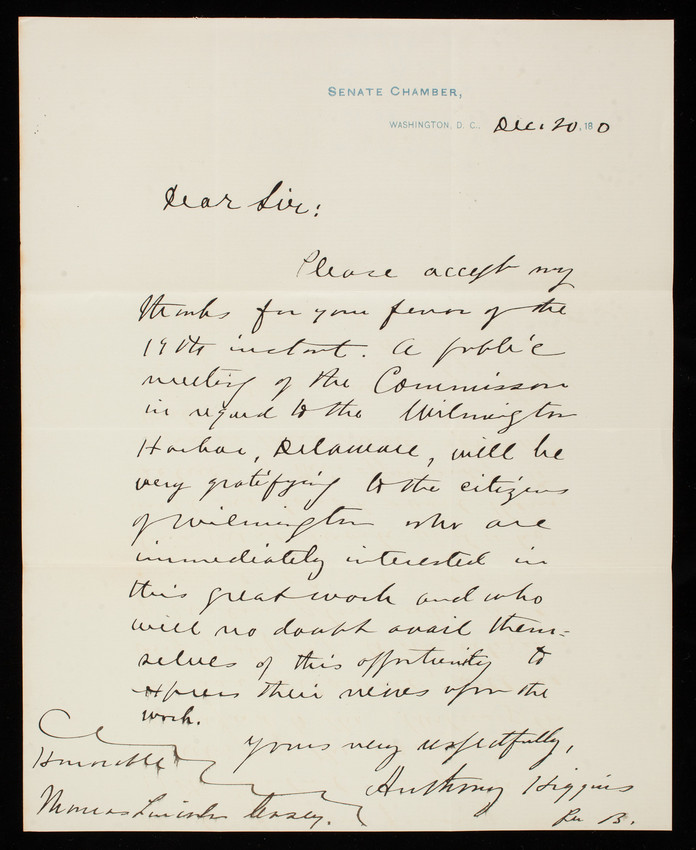 SENATE CHAMBER,
WASHINGTON, D. C., Dec. 20, 18 0
Dear Sir:
Please accept my
thanks for your favor of the
19th instant. A public
meeting of the Commission
in regard to the Wilmington
Harbor, Delaware, will be
very gratifying to the citizens
of Wilmington who are
immediately interested in
this great work and who
will no doubt avail them-
selves of this opportunity to
express their views upon the
work.
Yours very respectfully,
Anthony Higgins
Per B.
Honorable
Thomas Lincoln Casey.